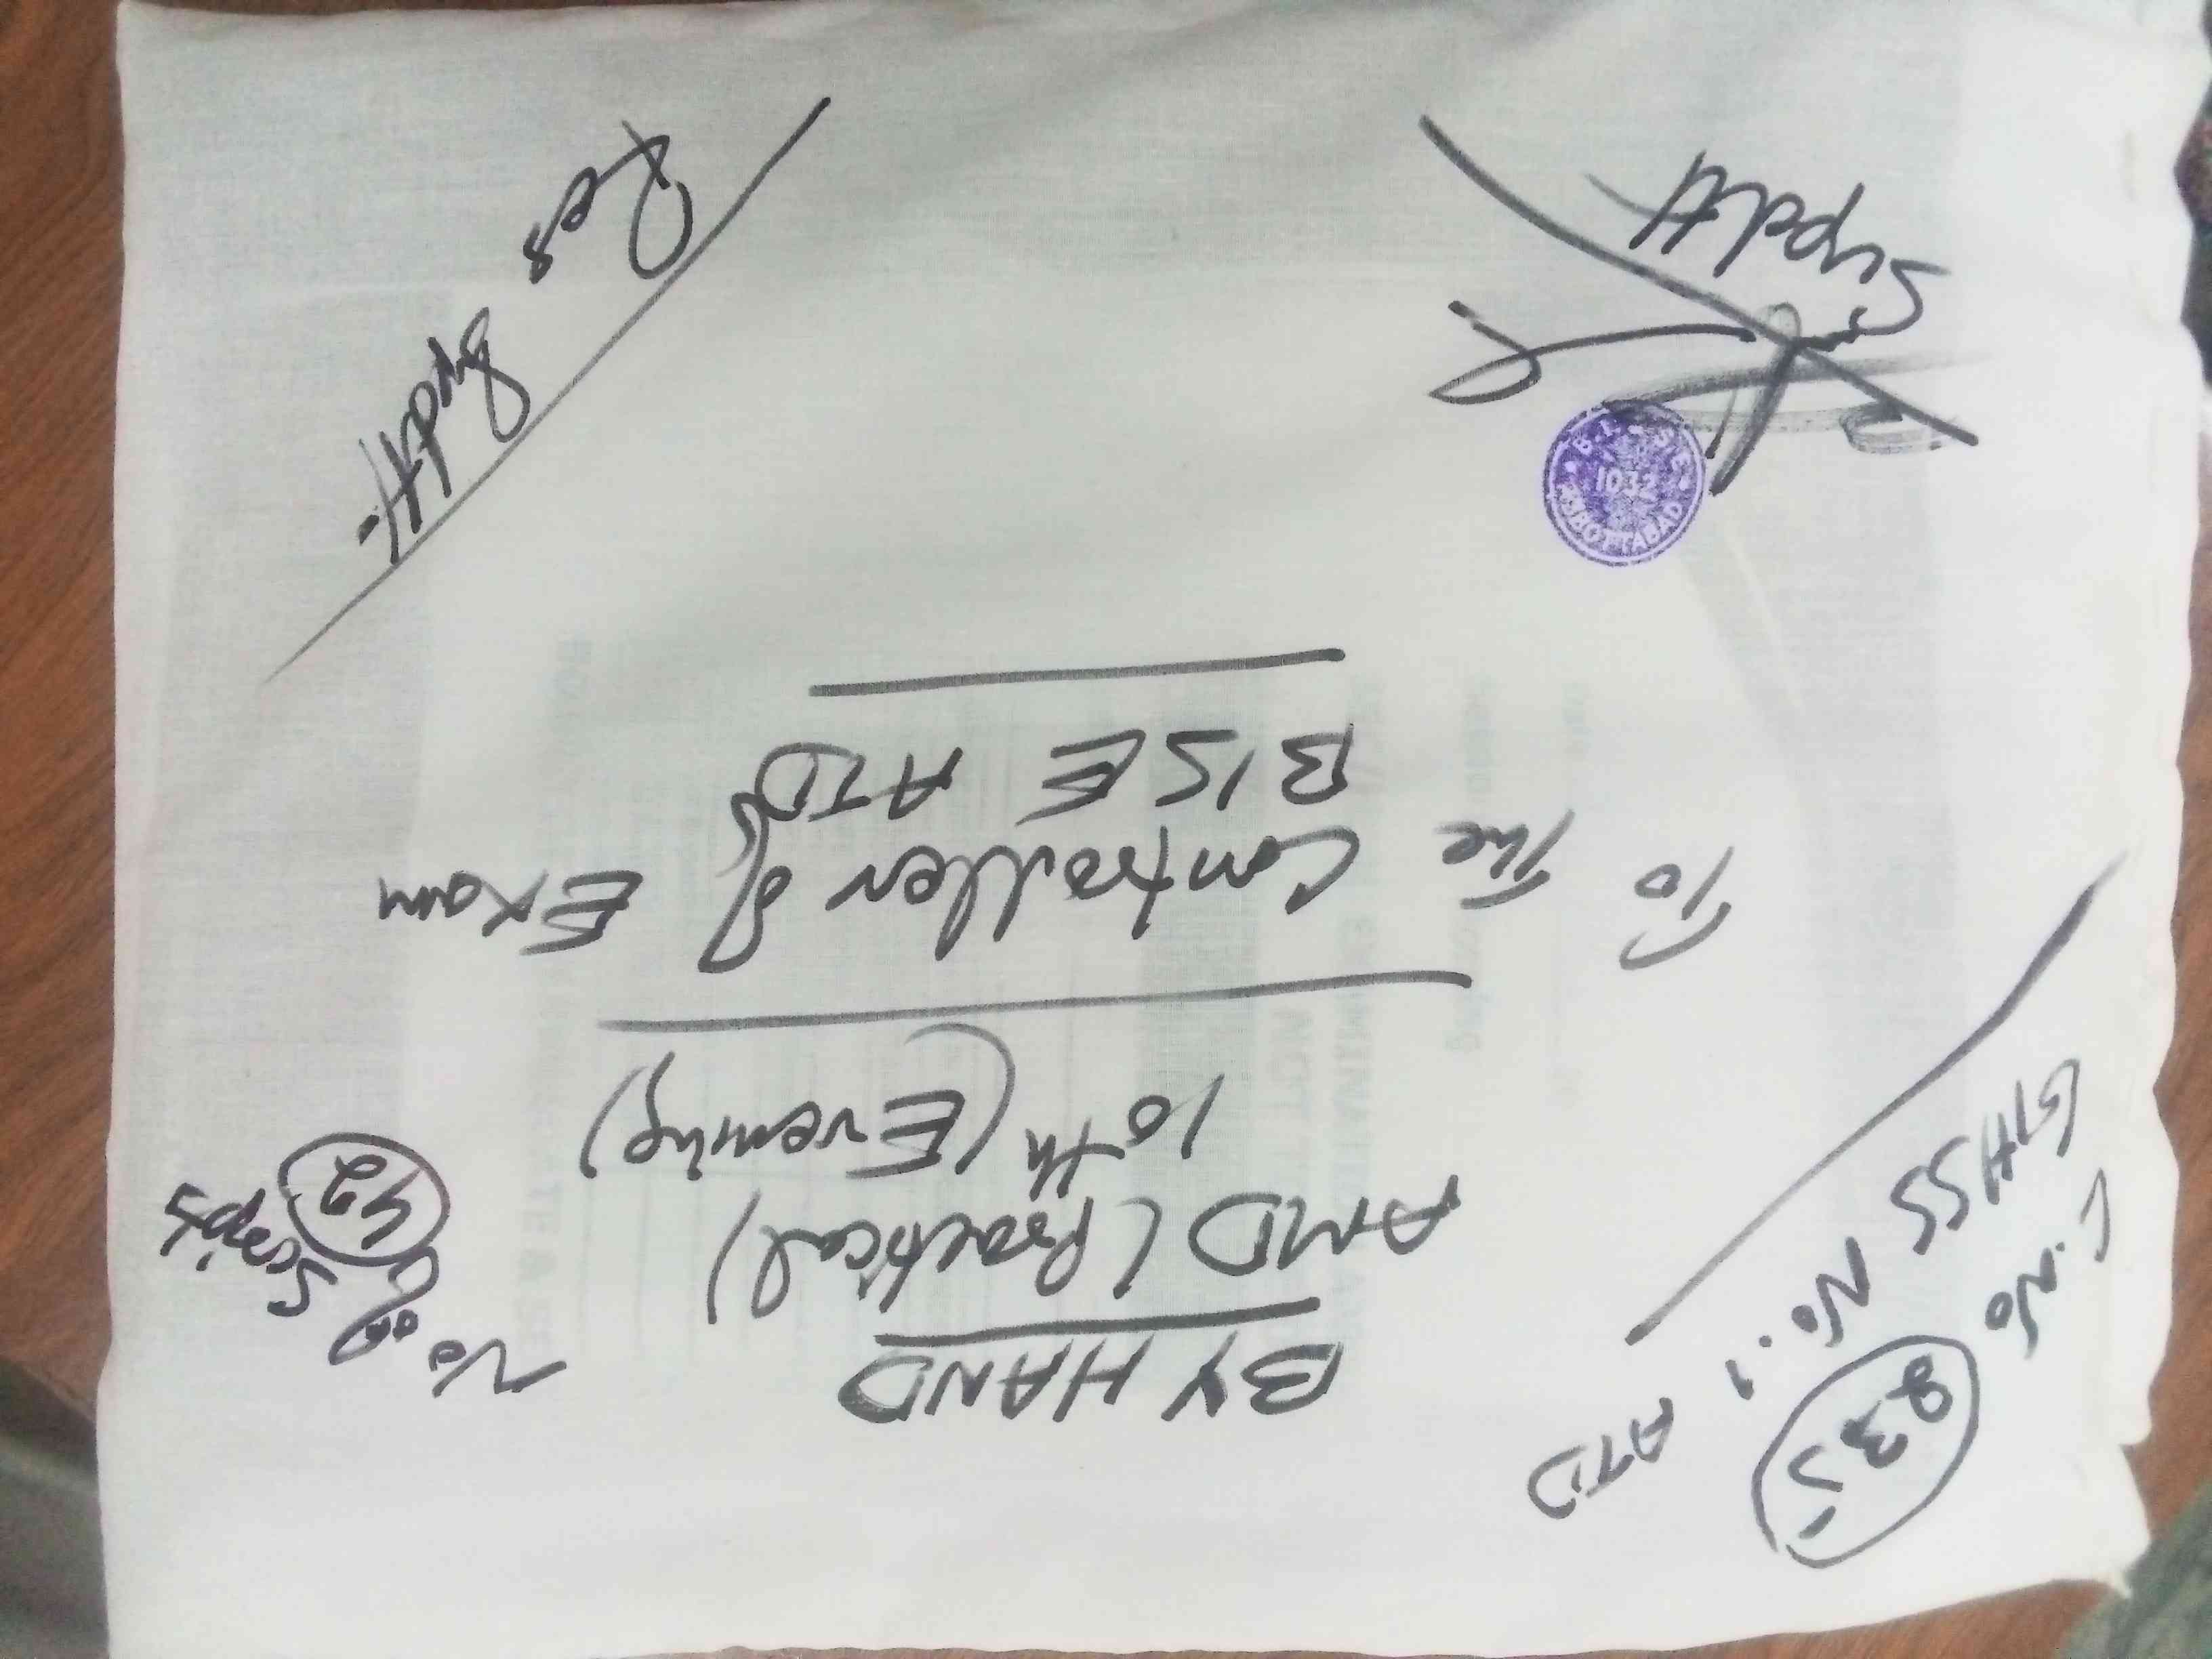 C.No 835
GHSS No.1 ATD
BY HAND
AMD (Practical)
10th (Evening)
No of
Scripts
42
To The Controller of Exam
BISE ATD
Supdtt
Res
Supdtt.
B.I.S.E
1032
ABBOTTABAD